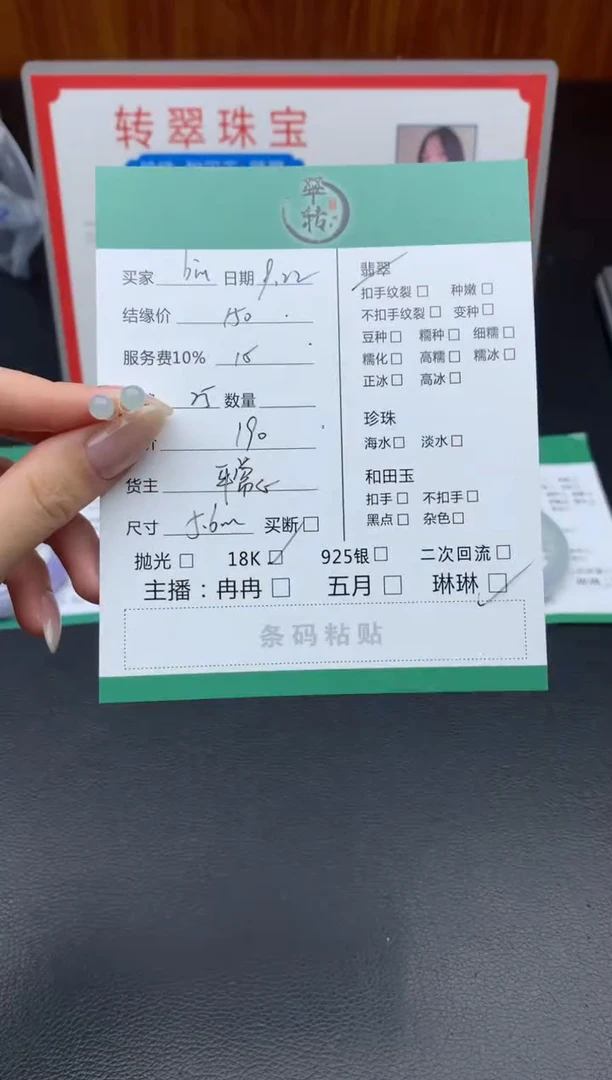 转翠珠宝
翠转
买家 bin 日期 9.22
结缘价 150
服务费10% 15
25 数量
价 190
货主 平常心
尺寸 5.6m 买断□
翡翠
扣手纹裂□ 种嫩□
不扣手纹裂□ 变种□
豆种□ 糯种□ 细糯□
糯化□ 高糯□ 糯冰□
正冰□ 高冰□
珍珠
海水□ 淡水□
和田玉
扣手□ 不扣手□
黑点□ 杂色□
抛光□ 18K☑ 925银□ 二次回流□
主播：冉冉□ 五月□ 琳琳☑
条码粘贴